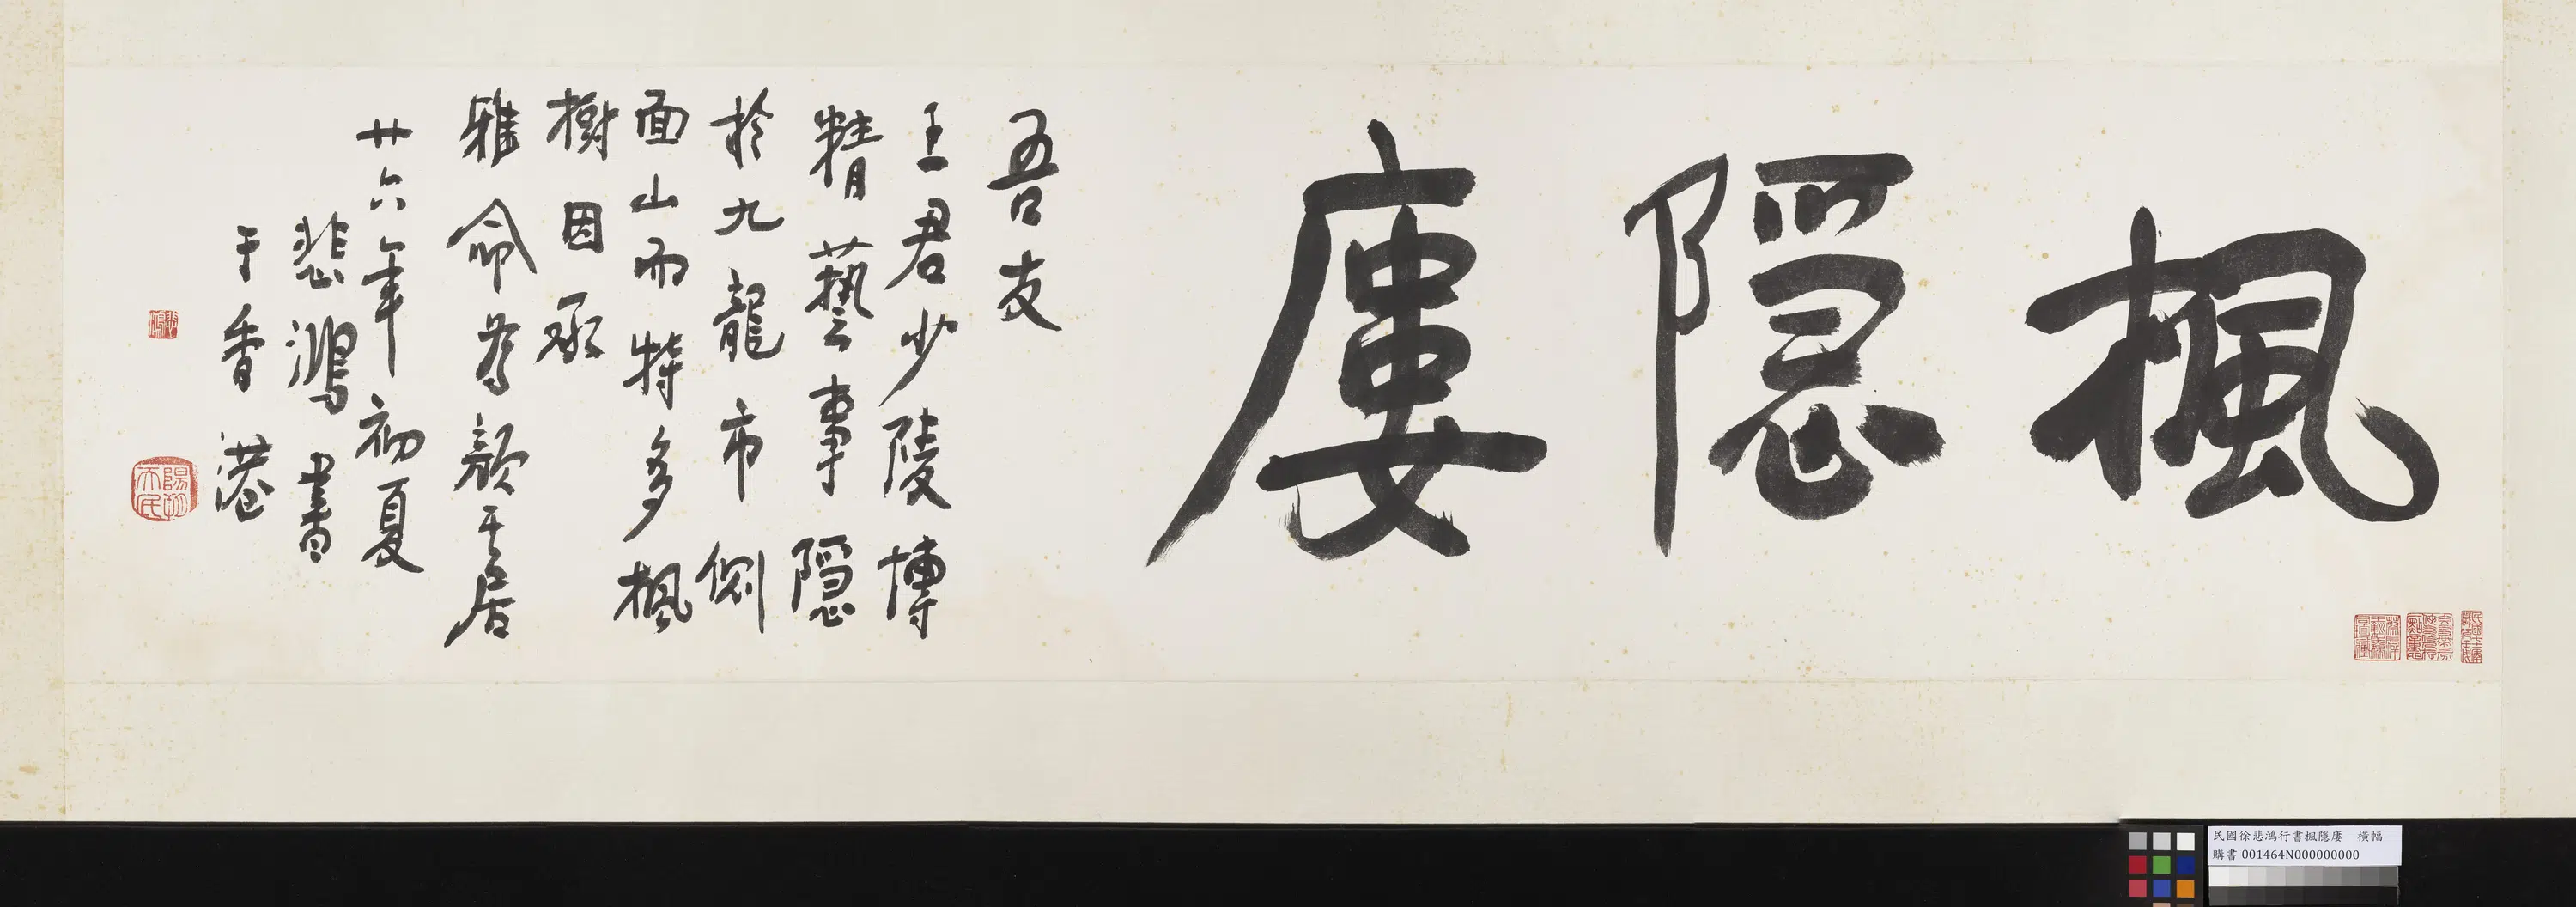 楓隱廔
吾友
王君少陵博
精藝事隱
於九龍市側
面山而特多楓
樹因承
雅命為顏其居
廿六年初夏
悲鴻書
于香港
悲鴻
陽朔天民
民國徐悲鴻行書楓隱廔 橫幅
購書 001464N000000000